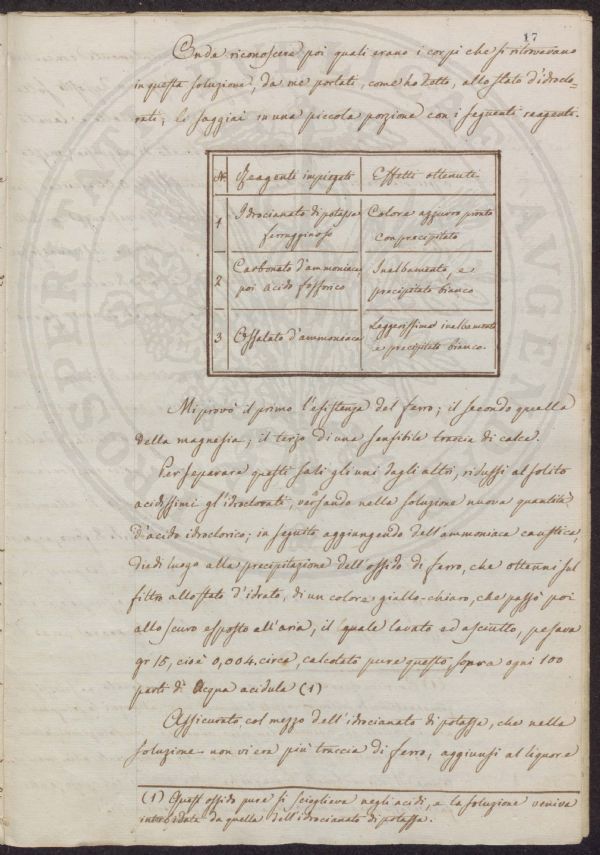 17
Onde riconoscere poi quali erano i corpi che si ritrovavano
in questa soluzione, da me portati, come ho detto, allo stato d'idroclo-
rati, li saggiai in una piccola porzione con i seguenti reagenti.
N.° Reagenti impiegati Effetti ottenuti
1 Idrocianato di potassa ferrugginoso Colore azzurro pronto con precipitato
2 Carbonato d'ammoniaca, poi acido fosforico Inalbamento, e precipitato bianco
3 Ossalato d'ammoniaca Leggerissimo inalbamento e precipitato bianco.
Mi provò il primo l'esistenza del ferro; il secondo quella
della magnesia; il terzo di una sensibile traccia di calce.
Per separare questi sali gli uni dagli altri, ridussi al solito
acidissimi gl'idroclorati, versando nella soluzione nuova quantità
d'acido idroclorico; in seguito aggiungendo dell'ammoniaca caustica,
diedi luogo alla precipitazione dell'ossido di ferro, che ottenni sul
filtro allo stato d'idrato, di un colore giallo-chiaro, che passò poi
allo scuro esposto all'aria, il quale lavato ed asciutto, pesava
gr 15, cioè 0,004. circa, calcolato pure questo sopra ogni 100
parti di Acqua acidula (1)
Assicurato, col mezzo dell'idrocianato di potassa, che nella
soluzione non vi era più traccia di ferro, aggiunsi al liquore
(1) Quest'ossido pure si scioglieva negli acidi, e la soluzione veniva
intorbidata da quella dell'idrocianato di potassa.
PROSPERITATI PUBLICAE AUGENDAE